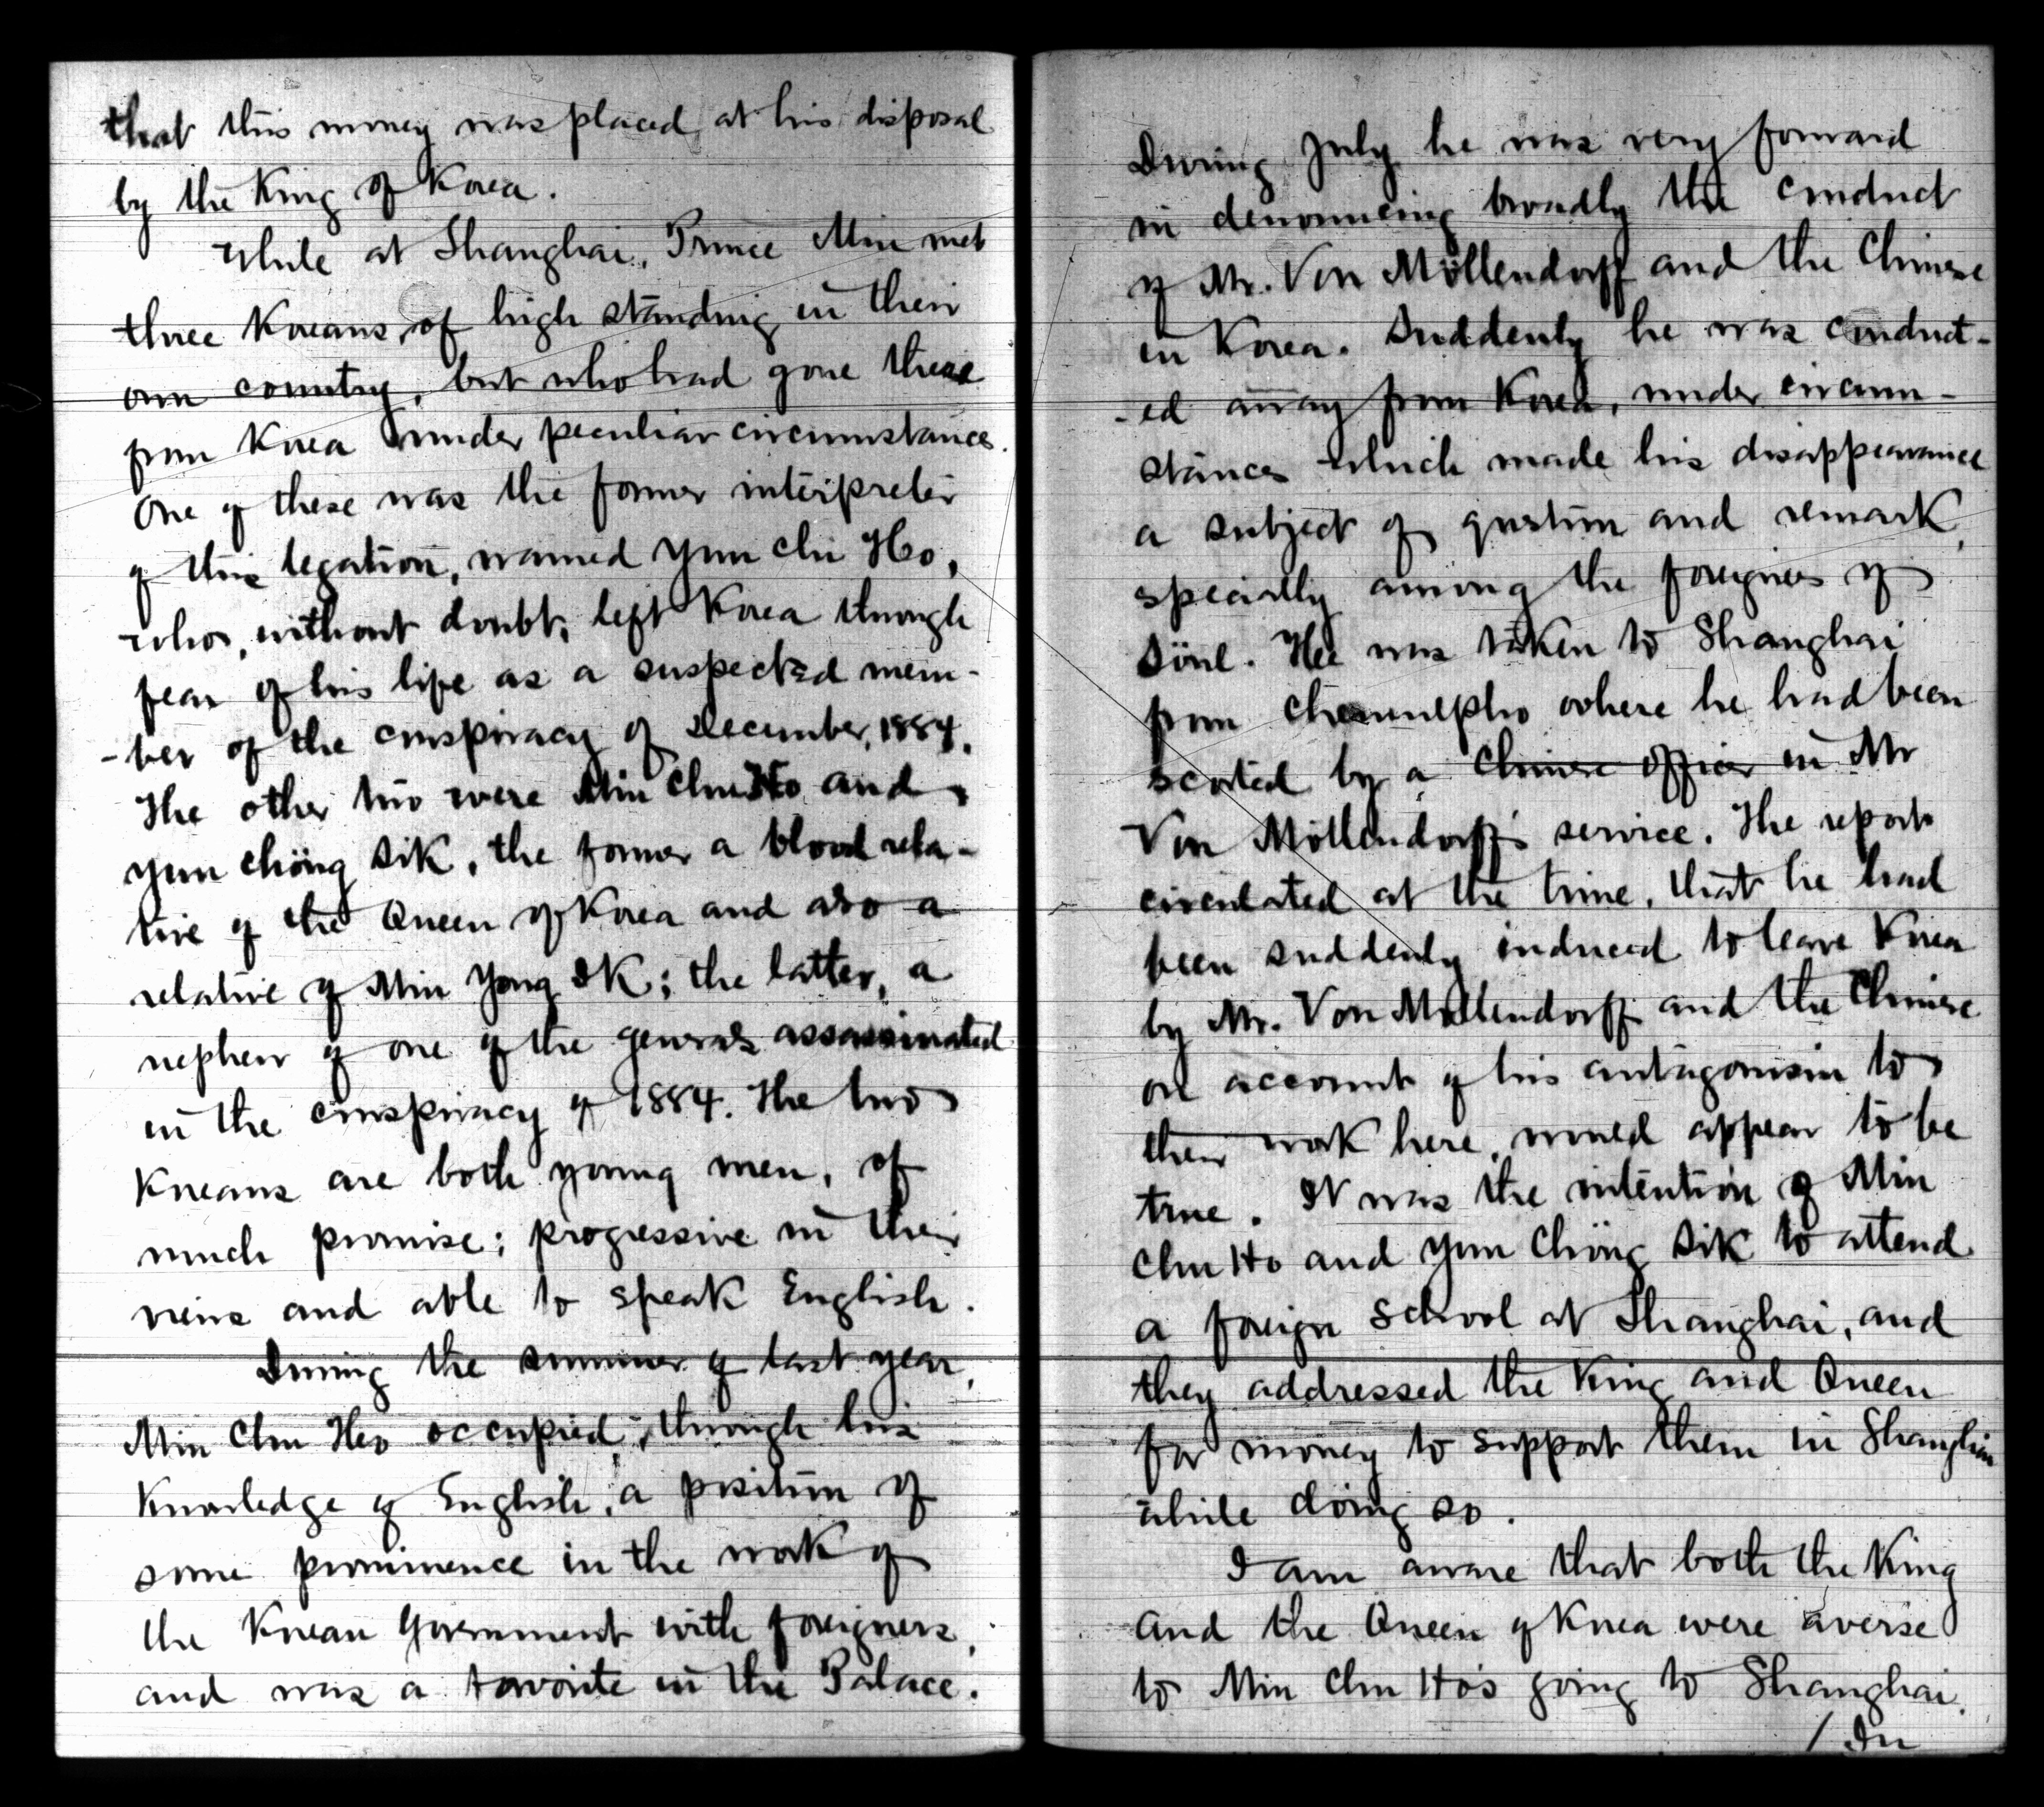 that this money was placed at his disposal
by the King of Korea.
While at Shanghai, Prince Min met
three Koreans, of high standing in their
own country, but who had gone there
from Korea under peculiar circumstances.
One of these was the former interpreter
of this legation, named Yun Chi Ho,
who, without doubt, left Korea through
fear of his life as a suspected mem-
-ber of the conspiracy of December, 1884.
The other two were Min Chu Ho and
Yun Chöng Sik, the former a blood rela-
tive of the Queen of Korea and also a
relative of Min Yong Ik; the latter, a
nephew of one of the generals assassinated
in the conspiracy of 1884. The two
Koreans are both young men, of
much promise; progressive in their
views and able to speak English.
During the summer of last year,
Min Chu Ho occupied, through his
knowledge of English, a position of
some prominence in the work of
the Korean Government with foreigners,
and was a favorite in the Palace.
During July he was very forward
in denouncing broadly the conduct
of Mr. Von Möllendorff and the Chinese
in Korea. Suddenly he was conduct-
-ed away from Korea, under circum-
stances which made his disappearance
a subject of question and remark,
specially among the foreigners of
Söul. He was taken to Shanghai
from Chemulpho where he had been
scorted by a Chinese officer in Mr
Von Möllendorff's service. The report
circulated at the time, that he had
been suddenly induced to leave Korea
by Mr. Von Möllendorff and the Chinese
on account of his antagonism to
their work here, would appear to be
true. It was the intention of Min
Chu Ho and Yun Chöng Sik to attend
a foreign school at Shanghai, and
they addressed the King and Queen
for money to support them in Shanghai
while doing so.
I am aware that both the King
and the Queen of Korea were averse
to Min Chu Ho's going to Shanghai.
/ In